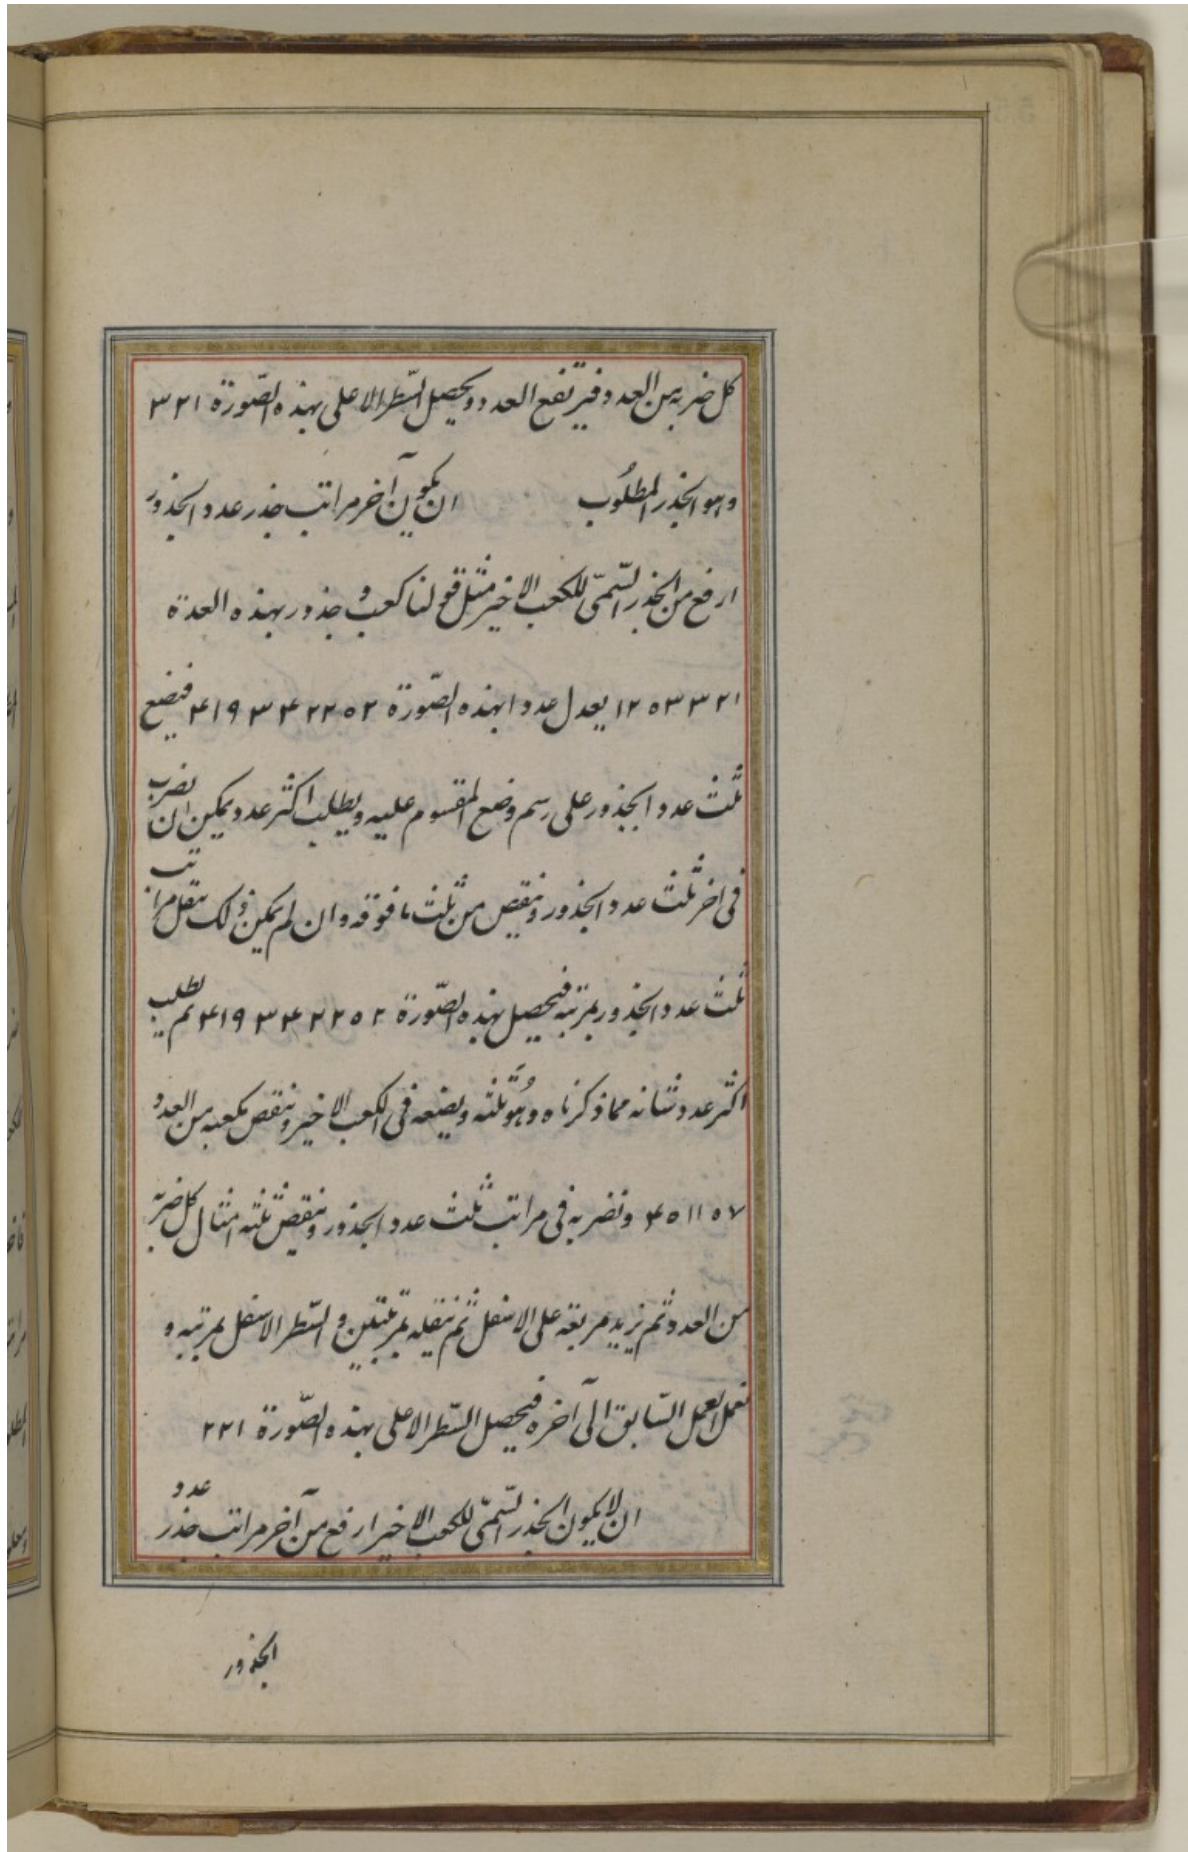 كل ضربه من العدد فيرتفع العدد ويحصل السّطر الاعلى بهذه الصّورة ٣٢١
وهو الجذر المطلُوب ان يكون آخر مراتب جذر عدد الجذور
ارفع من الجذر السّمىّ للكعب الاخير مثل قولنا كعب و جذور بهذه العدة
١٢٥٣٣٢١ يعدل عددا بهذه الصّورة ٤١٩٣٤٢٢٥٢ فيضع
ثلث عدد الجذور على رسم وضع المقسوم عليه ويطلب اكثر عدد يمكن ان يضرب
فى اخر ثلث عدد الجذور وينقص من ثلث ما فوقه وان لم يمكن ذلك ينقل مراتب
ثلث عدد الجذور بمرتبه فيحصل بهذه الصّورة ٤١٩٣٤٢٢٥٢ ثم يطلب
اكثر عدد شانه مما ذكرناه وهُوَ ثلثه ويضعه فى الكعب الاخير وينقص مكعبه من العدد
٤٥١١٥٧ ونضربه فى مراتب ثلث عدد الجذور وينقص ثلثه امثال كل ضربه
من العدد ثم نزيد مربعه على الاسفل ثم ننقله بمرتبتين و السّطر الاسفل بمرتبه و
نعمل العمل السّابق الى آخره فيحصل السّطر الاعلى بهذه الصّورة ٢٢١
ان لا يكون الجذر السّمىّ للكعب الاخير ارفع من آخر مراتب جذر عدد
الجذور